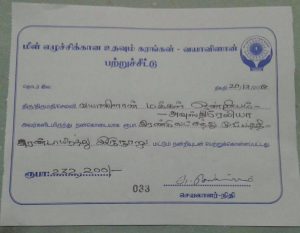 மீள் எழுச்சிக்கான உதவும் கரங்கள் - வயாவிளான்
பற்றுச்சீட்டு
தொடர் இல:
திகதி 20/12/
திரு/திருமதி/செல்வி வயாவிளான் மக்கள் ஒன்றியம் -
அவுஸ்திரேலியா
அவர்களிடமிருந்து நன்கொடையாக ரூபா இரண்டு லட்சத்து முப்பத்தி
இரண்டாயிரத்து இருநூறு மட்டும் நன்றியுடன் பெற்றுக்கொள்ளப்பட்டது
ரூபா: 232,200/-
033
செயலாளர்-நிதி